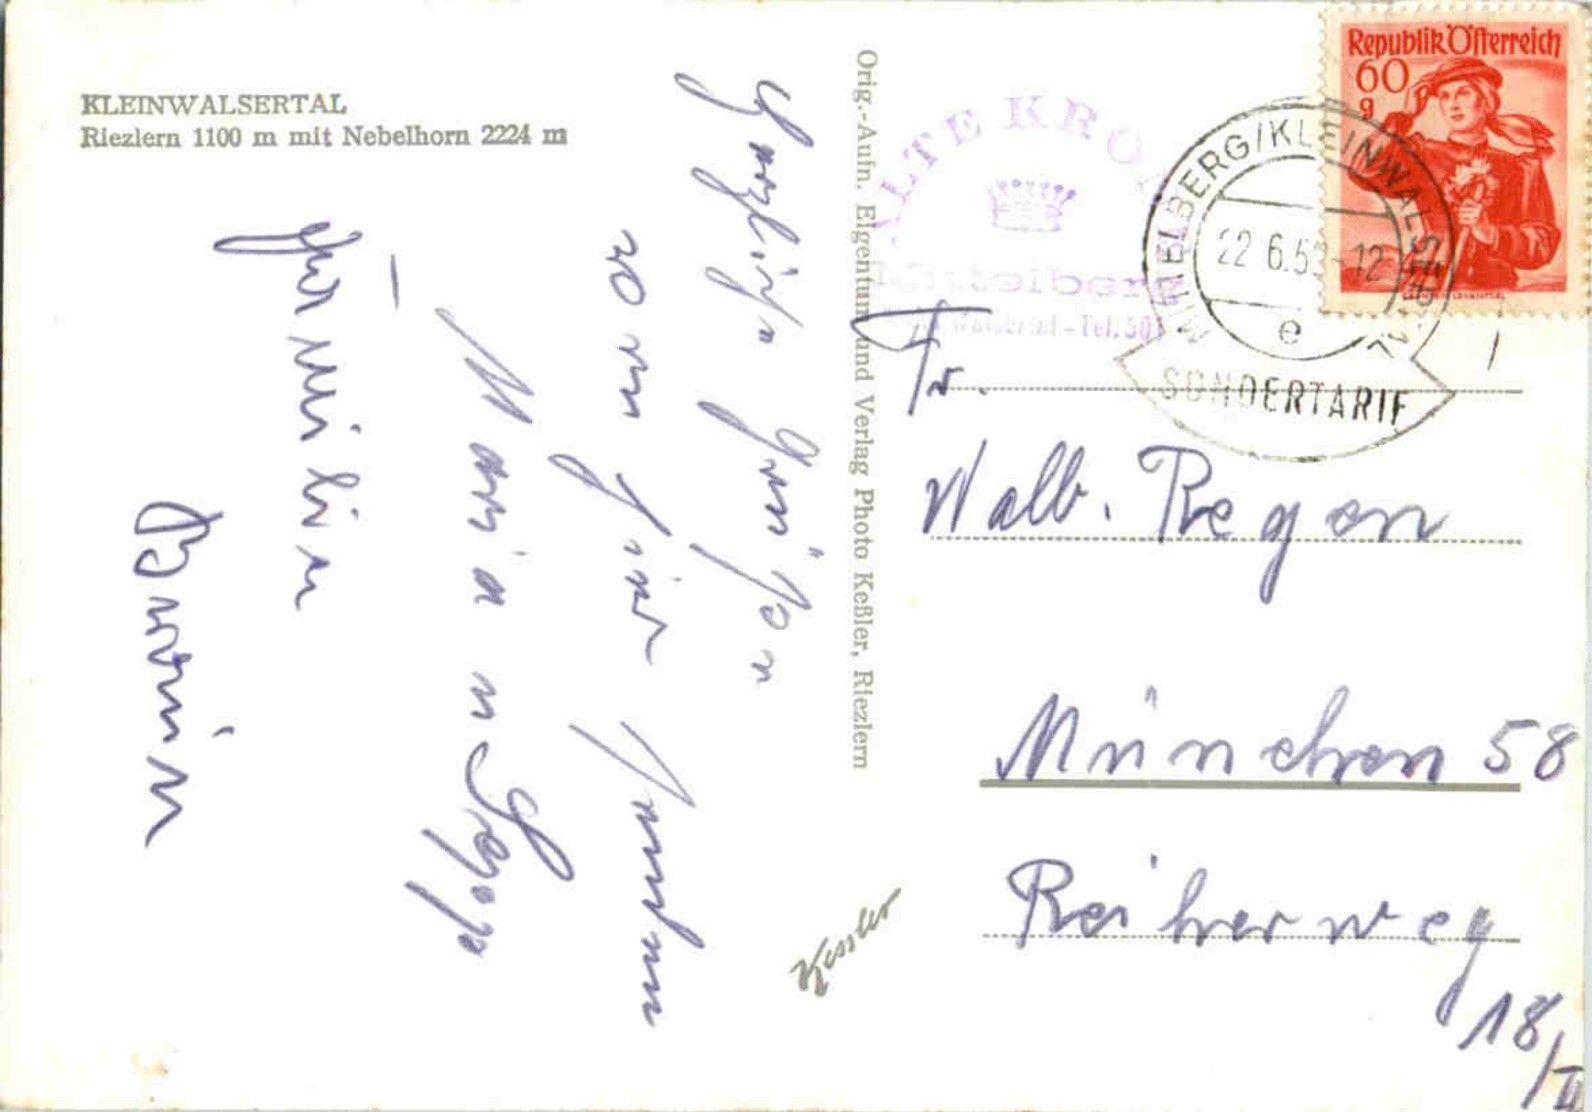 KLEINWALSERTAL
Riezlern 1100 m mit Nebelhorn 2224 m
Herzliche Grüße
von hier
Familien
Orig.-Aufn. Eigentum und Verlag Photo Keßler, Riezlern
Kessler
ALTE KRO
Mittelberg
Walsertal - Tel. 50
MITTELBERG/KLEINWALSERTAL
22 6.5 -12
e
SONDERTARIF
Republik Österreich
60
g
Fr.
Walb. Regen
München 58
Reiherweg
18/II